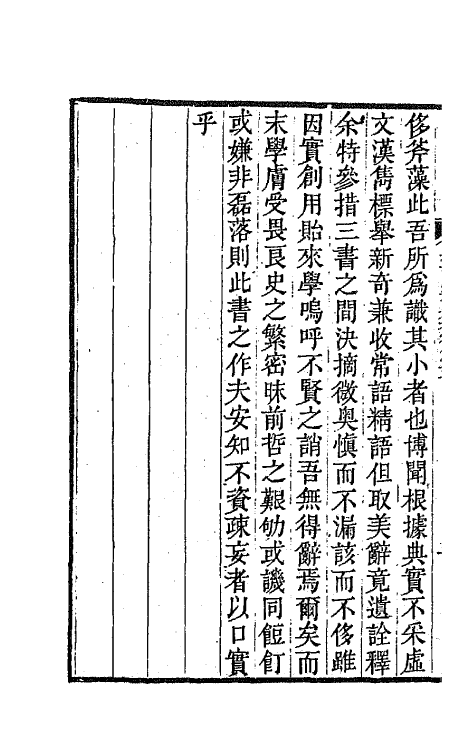 侈斧藻此吾所爲識其小者也博聞根據典實不采虛
文漢雋標舉新奇兼收常語精語但取美辭竟遺詮釋
余特參措三書之間決摘微奥愼而不漏該而不侈雖
因實創用貽來學嗚呼不賢之誚吾無得辭焉爾矣而
末學膚受畏良史之繁密昧前哲之艱劬或譏同飣餖
或嫌非磊落則此書之作夫安知不資疎妄者以口實
乎